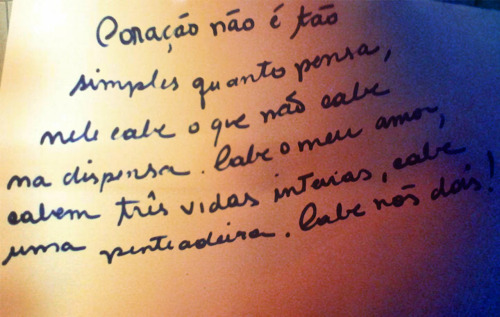 Coração não é tão
simples quanto pensa,
nele cabe o que não cabe
na dispensa. Cabe o meu amor,
cabem três vidas inteiras, cabe
uma penteadeira. Cabe nós dois!